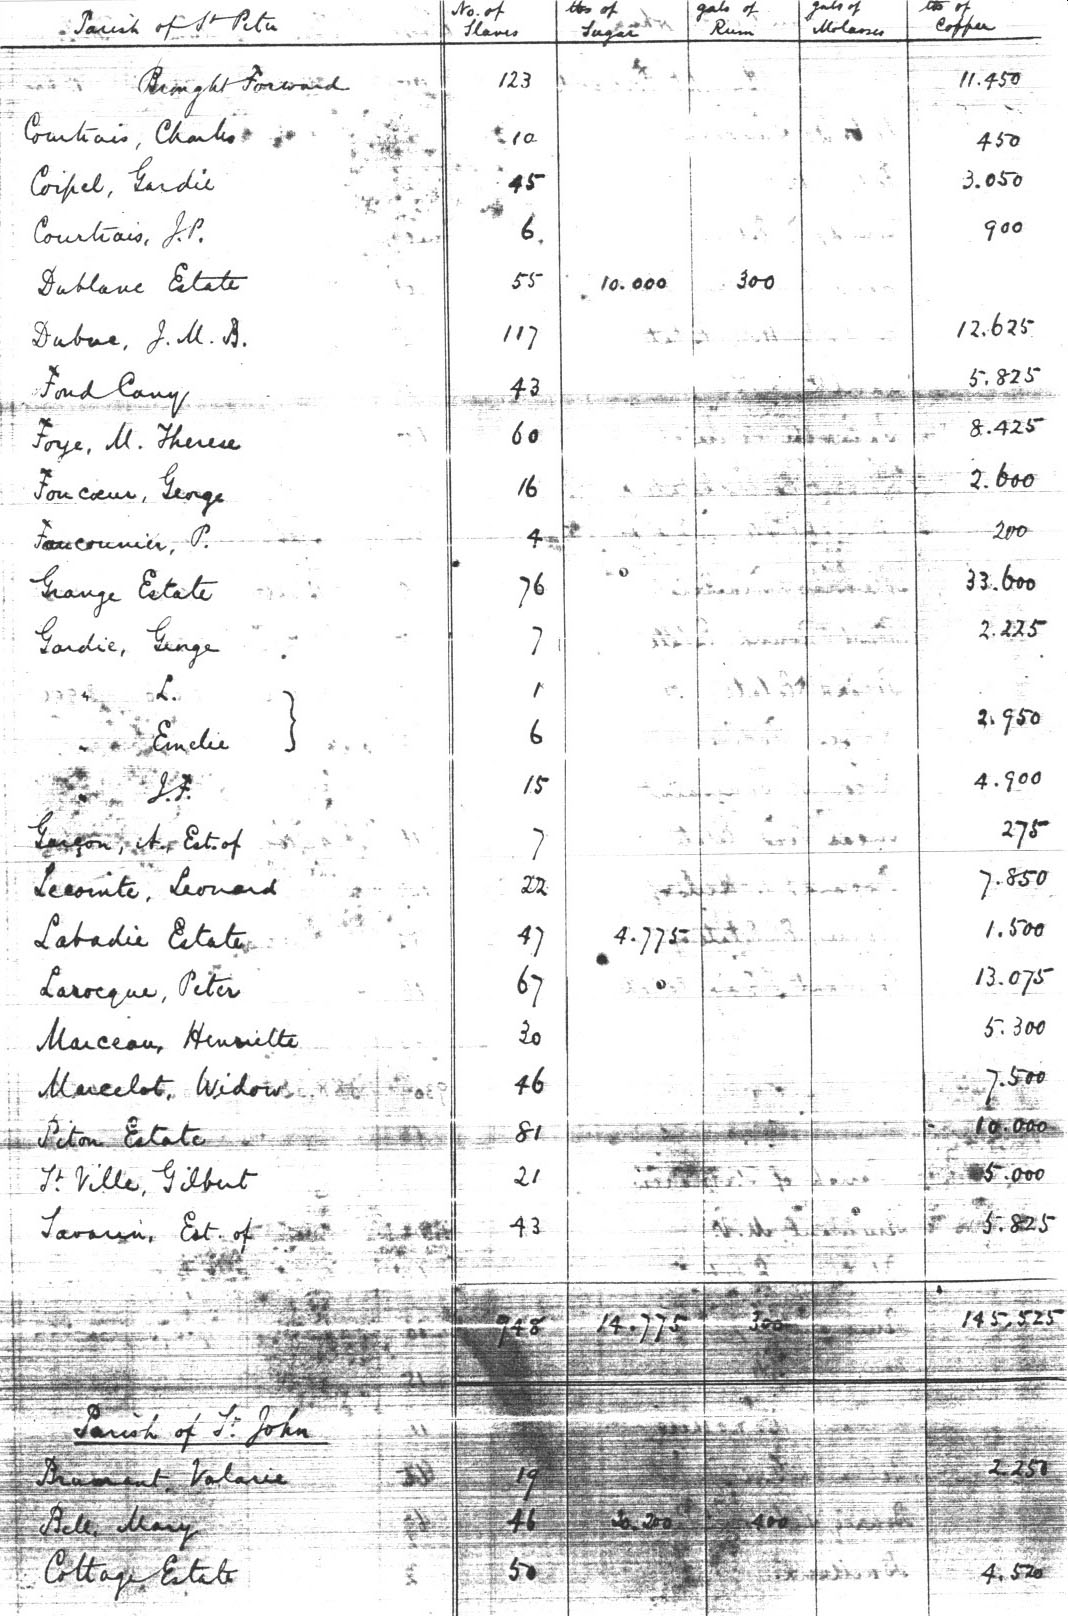 Parish of St Peter No. of Slaves lbs of Sugar gals of Rum gals of Molasses lbs of Copper
Brought Forward 123 11.450
Courtiais, Charles 10 450
Coipel, Gardie 45 3.050
Courtiais, J.P. 6 900
Dublanc Estate 55 10.000 300
Dubuc, J. M. B. 117 12.625
Fond Cany 43 5.825
Foye, M. Therese 60 8.425
Foncoeur, George 16 2.600
Faucounier, P. 4 200
Grange Estate 76 33.600
Gardie, George 7 2.225
L. 1
Emelie } 6 2.950
J.F. 15 4.900
Garçon, A., Est. of 7 275
Lecointe, Leonard 22 7.850
Labadie Estate 47 4.775 1.500
Larocque, Peter 67 13.075
Marceau, Henriette 30 5.300
Marcelot, Widow 46 7.500
Piton Estate 81 10.000
St Ville, Gilbert 21 5.000
Savarin, Est. of 43 5.825
948 14.775 300 145,525
Parish of St John
Bramant, Valarie 19 2.250
Bell, Mary 46 20.200 400
Cottage Estate 50 4.520